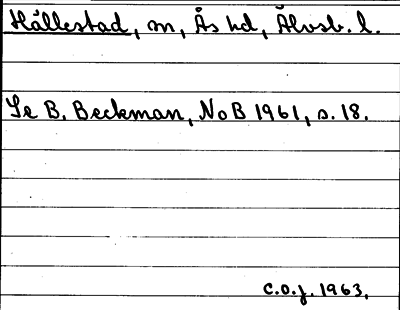 Hällestad, m, Ås hd, Älvsb. l.
Se B. Beckman, NoB 1961, s. 18.
C.O.J. 1963.